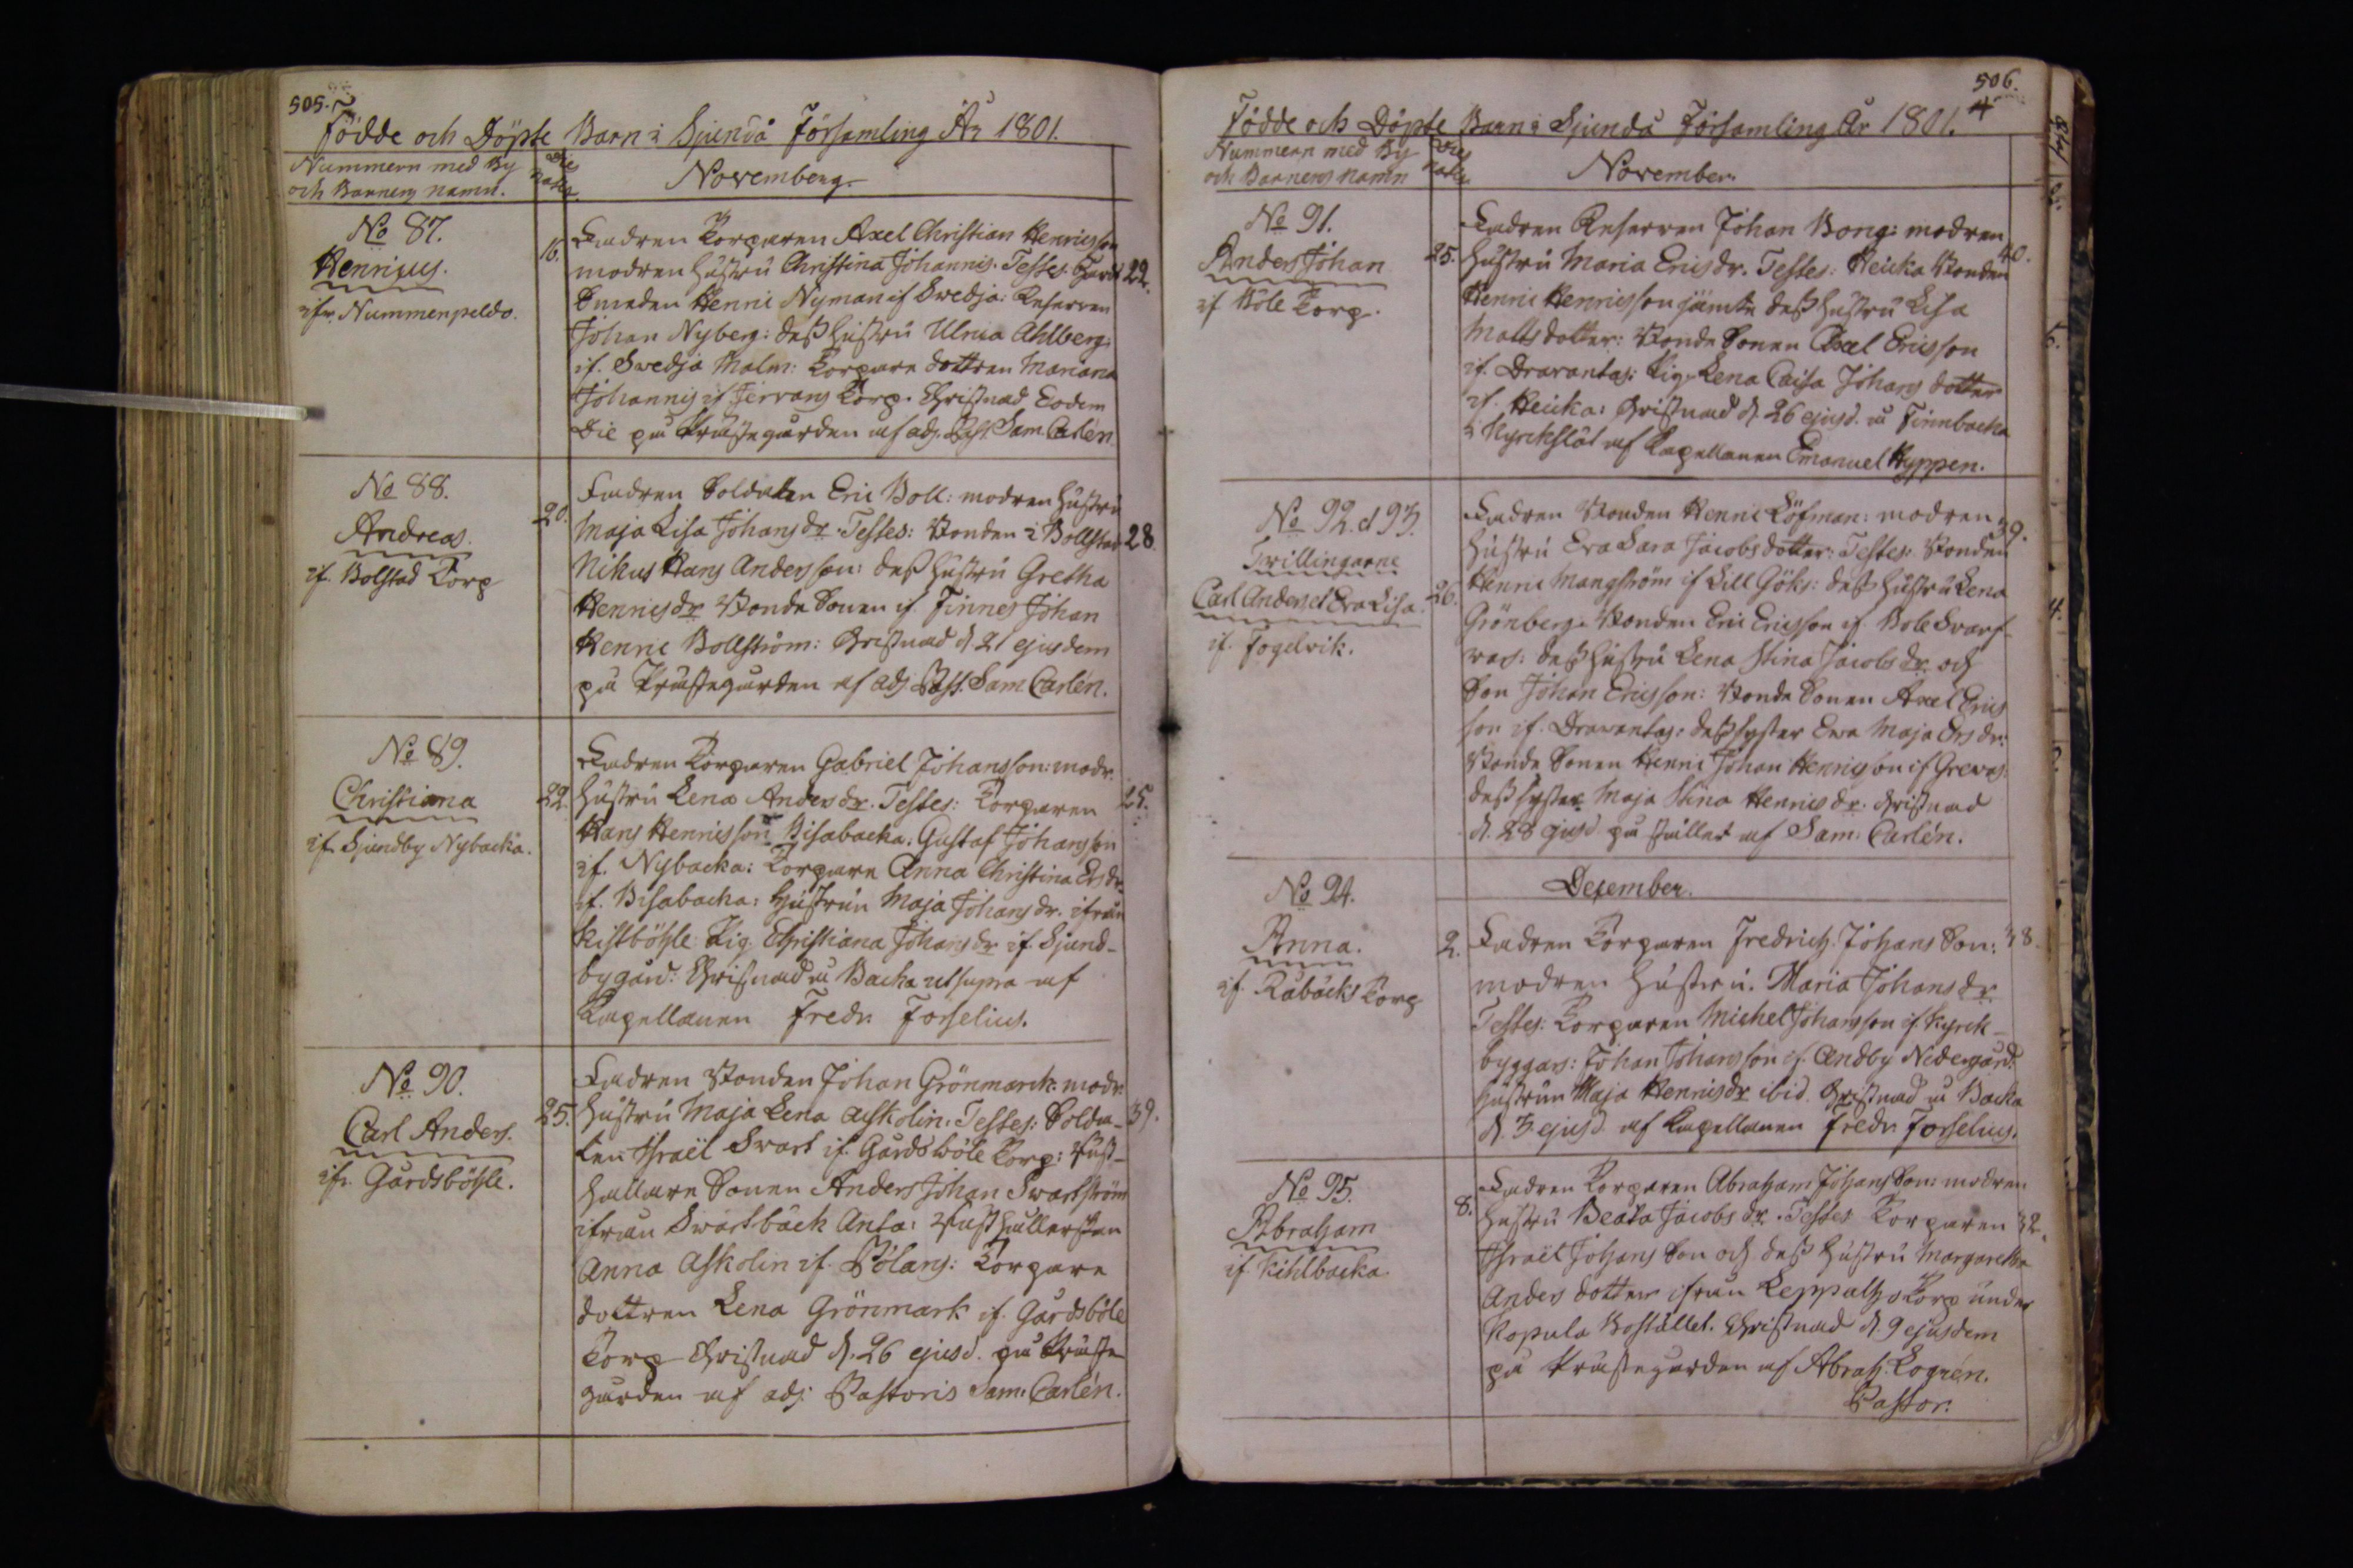 505.
Födde och Döpte Barn i Sjundå Församling År 1801.
Nummern med By
och Barnens namn.
Dies
natal.
November.
No 87.
Henricus.
ifr. Nummenpeldo.
16.
Fadren Torparen Axel Christian Henricsson
modren hustru Christina Johannis. Testes: Gårds
22.
Smeden Henric Nyman if Swedja: Reserven
Johan Nyberg: dess hustru Ulrica Ahlberg:
if. Swedja Malm: Torpare dottren Mariana
Johannis if Jervans Torp. Christnad Eodem
Die på Prästegården af adj. Past. Sam Carlén
No 88.
Andreas.
if. Bolstad Torp
20.
Fadren Soldaten Eric Boll: modren hustru
Maja Lisa Johans dr. Testes: Bonden i Bollstad
28.
Nikus Hans Andersson: dess hustru Gretha
Henrics dr Bonde Sonen if. Finnes Johan
Henric Bollström: Christnad d. 21 ejusdem
på Prästegården af adj. Past. Sam Carlén.
No 89.
Christiana
if. Sjundby Nybacka.
22.
Fadren Torparen Gabriel Johansson: modr.
hustru Lena Anders dr. Testes: Torparen
25.
Hans Henricsson Bisabacka. Gustaf Johansson
if. Nybacka: Torpare Anna Christina Ers dr.
if. Bisabacka: hustrun Maja Johans dr. ifrån
Kistböhle Pig. Christiana Johans dr if Sjund-
bygård: Christnad i Backa ut supra af
Kapellanen Fredr. Forselius.
No 90.
Carl Anders.
ifr. Gårdsböhle.
25.
Fadren Bonden Johan Grönmarck: modr.
hustru Maja Lena Askolin: Testes: Solda-
39.
ten Israël Svart if. Gårdsböle Torp: Rust-
hållare Sonen Anders Johan Swartström
ifrån Swartbäck Anta: Rusthållerskan
Anna Askolin if. Pölans: Torpare
dottren Lena Grönmark if. Gårdsböle
Torp Christnad d. 26 ejusd. på Präste
gården af adj. Pastoris Sam: Carlén.
506.
4
Födde och Döpte Barn i Sjundå Församling År 1801.
Nummern med By
och Barnens namn
Dies
natal.
November.
No 91.
Anders Johan
if Böle Torp.
25.
Fadren Reserven Johan Bong: modren
40.
hustru Maria Erics dr. Testes: Heicka Bonden
Henric Henricsson jämte dess hustru Lisa
Matts dotter: Bonde Sonen Axel Ericsson
if. Dravantas: Pig. Lena Caisa Johans dotter
if. Heicka: Christnad d. 26 ejusd. i Finnbacka
i Kyrckslät af Kapellanen Emanuel Hyppen.
No 92. et 93.
Twillingarne
Carl Anders et Eva Lisa.
if. Fogelvik.
26.
Fadren Bonden Henric Löfman: modren
39.
hustru Eva Sara Jacobs dotter: Testes: Bonden
Henric Mangström if Lill Göks: dess hustru Lena
Grönberg. Bonden Eric Ericsson if. Bole Svarf-
vas: dess hustru Lena Stina Jacobs dr. och
Son Johan Ericsson: Bonde Sonen Axel Erics
son if. Dravantas: dess syster Eva Maja Ers dr:
Bonde Sonen Henric Johan Henricsson if Grevas:
dess syster Maja Stina Henrics dr. Christnad
d. 28 ejusd på stället af Sam: Carlén.
December.
No 94.
Anna.
if. Råbäcks Torp
2.
Fadren Torparen Fredrich Johans Son:
38.
modren hustru. Maria Johans dr.
Testes: Torparen Michel Johansson if. Kyrck-
byggars: Johan Johansson if. Andby Nedergård:
hustrun Maja Henrics dr ibid. Christnad i Backa
d. 3 ejusd af Kapellanen Fredr. Forselius.
No 95.
Abraham
if. Kihlbacka
8.
Fadren Torparen Abraham Johans Son: modren
hustru Beata Jacobs dr. Testes Torparen
32.
Israël Johans Son och dess hustru Margaretha
Anders dotter ifrån Leppalts Torp under
Kopula Bostället. Christnad d. 9 ejusdem
på Prästegården af Abrah. Logrén.
Pastor.